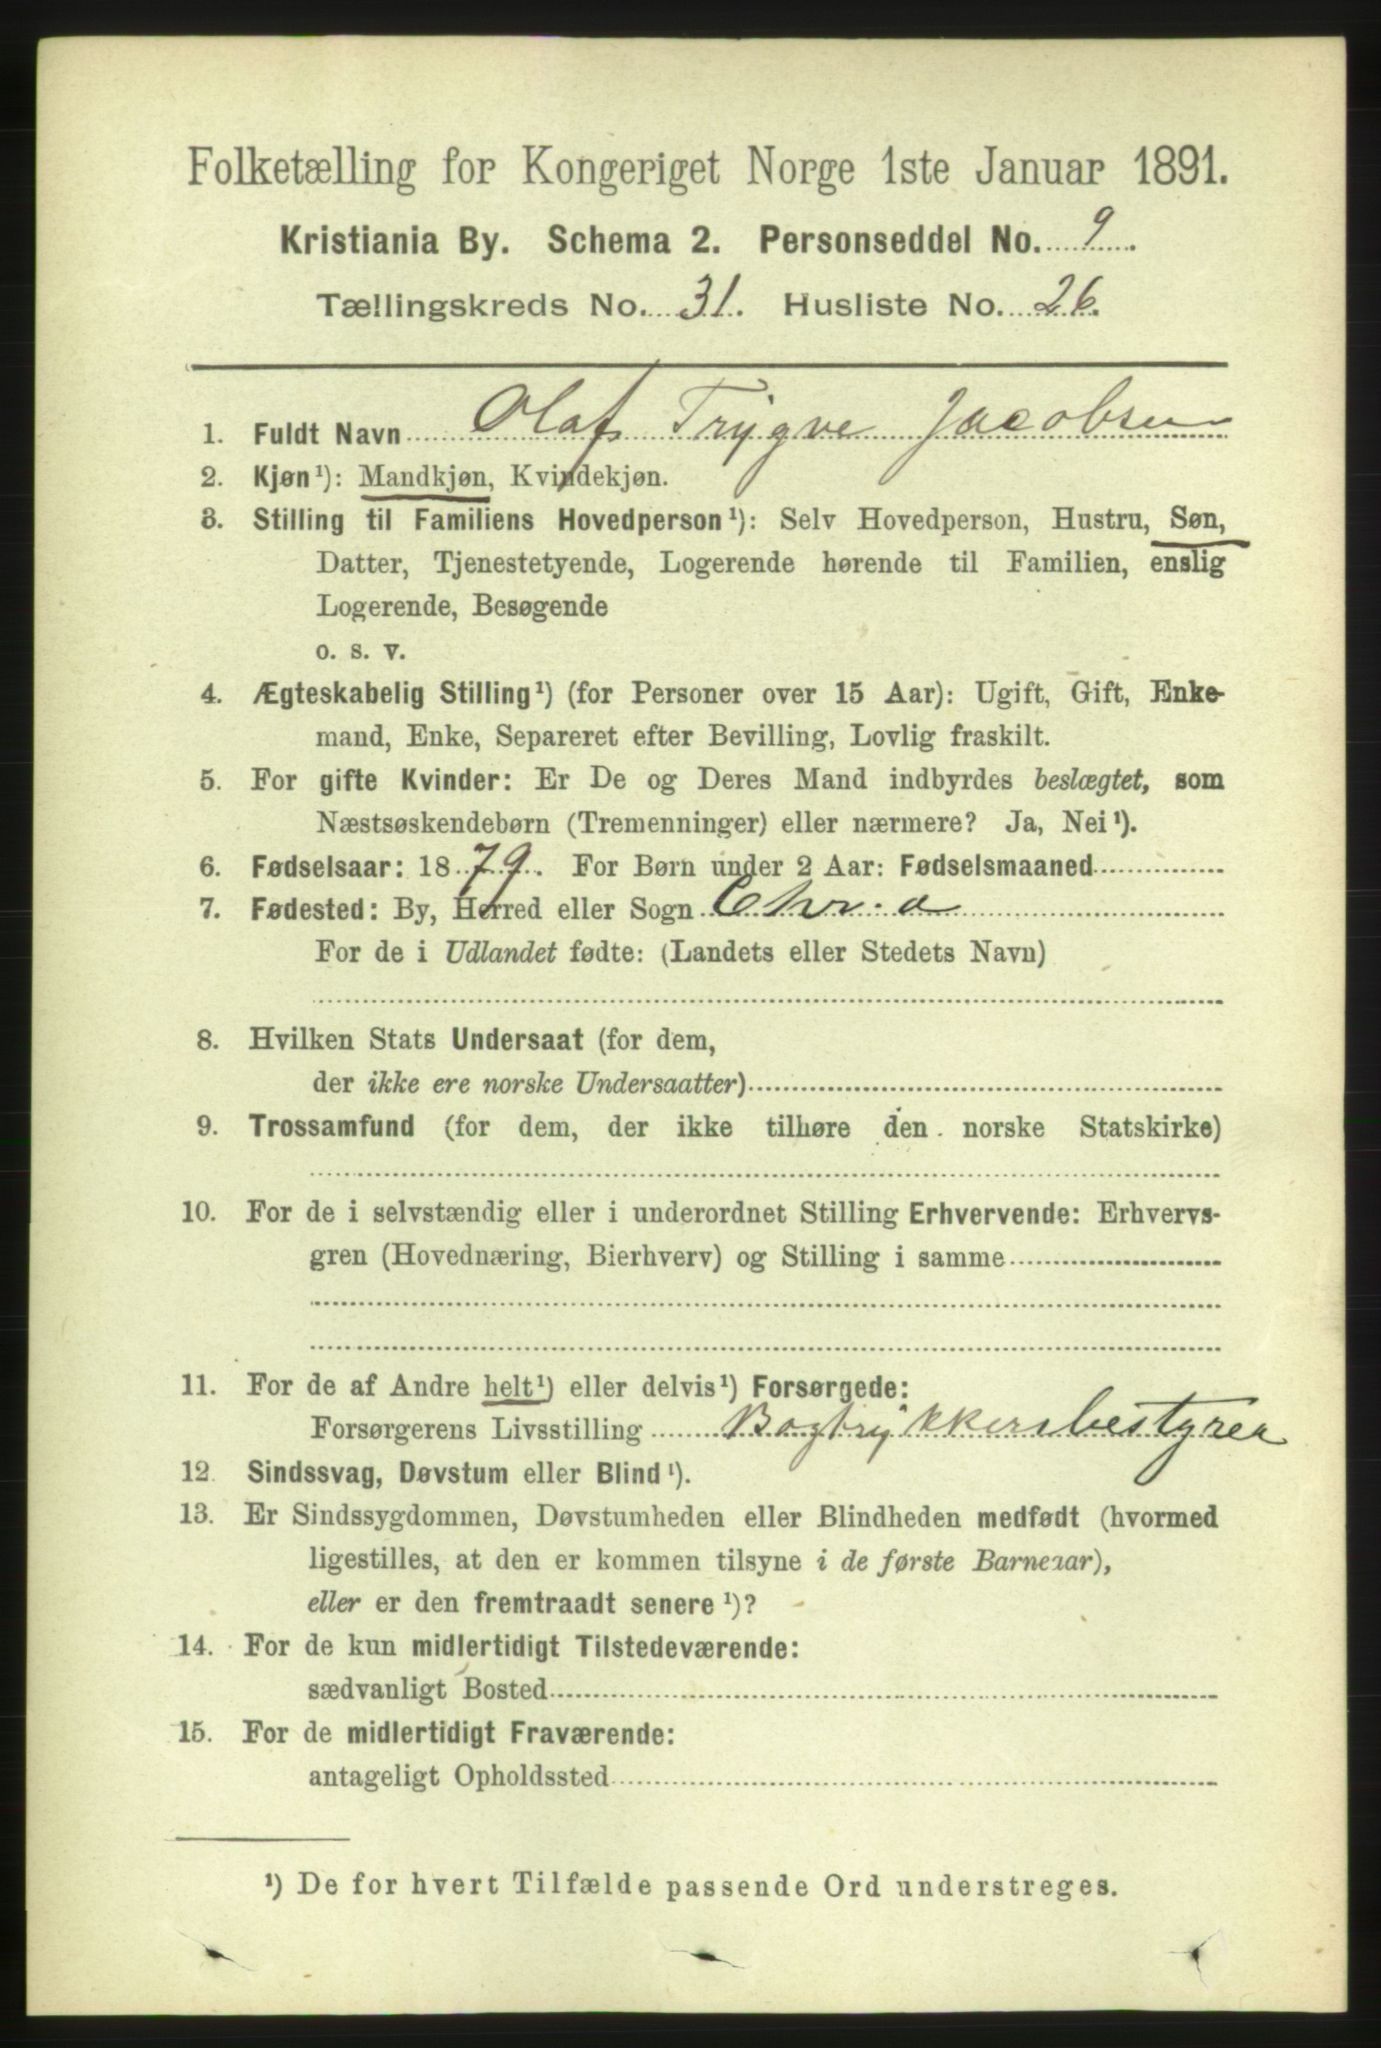 Folketælling for Kongeriget Norge 1ste Januar 1891.
Kristiania By. Schema 2. Personseddel No. 9.
Tællingskreds No. 31. Husliste No. 26.
1. Fuldt Navn Olaf Trygve Jacobsen
2. Kjøn¹): Mandkjøn, Kvindekjøn.
3. Stilling til Familiens Hovedperson¹): Selv Hovedperson, Hustru, Søn,
Datter, Tjenestetyende, Logerende hørende til Familien, enslig
Logerende, Besøgende
o. s. v.
4. Ægteskabelig Stilling¹) (for Personer over 15 Aar): Ugift, Gift, Enke-
mand, Enke, Separeret efter Bevilling, Lovlig fraskilt.
5. For gifte Kvinder: Er De og Deres Mand indbyrdes beslægtet, som
Næstsøskendebørn (Tremenninger) eller nærmere? Ja, Nei¹).
6. Fødselsaar: 1879. For Børn under 2 Aar: Fødselsmaaned
7. Fødested: By, Herred eller Sogn Chr.a
For de i Udlandet fødte: (Landets eller Stedets Navn)
8. Hvilken Stats Undersaat (for dem,
der ikke ere norske Undersaatter)
9. Trossamfund (for dem, der ikke tilhøre den norske Statskirke)
10. For de i selvstændig eller i underordnet Stilling Erhvervende: Erhvervs-
gren (Hovednæring, Bierhverv) og Stilling i samme
11. For de af Andre helt¹) eller delvis¹) Forsørgede:
Forsørgerens Livsstilling Bogtrykkersbestyrer
12. Sindssvag, Døvstum eller Blind¹).
13. Er Sindssygdommen, Døvstumheden eller Blindheden medfødt (hvormed
ligestilles, at den er kommen tilsyne i de første Barneaar),
eller er den fremtraadt senere¹)?
14. For de kun midlertidigt Tilstedeværende:
sædvanligt Bosted
15. For de midlertidigt Fraværende:
antageligt Opholdssted
¹) De for hvert Tilfælde passende Ord understreges.